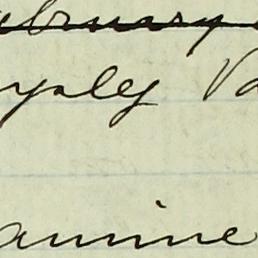 ebruary
yaley Va
amine